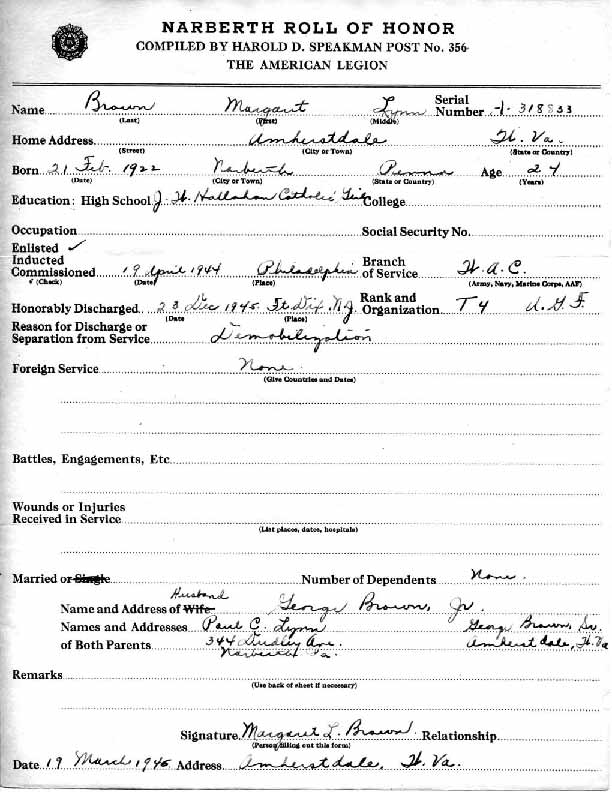 NARBERTH ROLL OF HONOR
COMPILED BY HAROLD D. SPEAKMAN POST No. 356
THE AMERICAN LEGION
Name Brown Margaret Lynn Serial Number
(Last) (First) (Middle)
Home Address Amherstdale W. Va.
(Street) (City or Town) (State or Country)
Born 21 Feb. 1922 Narberth Penna Age 24
(Date) (City or Town) (State or Country) (Years)
Education: High School J. W. Hallahan Catholic Girls College
Occupation Social Security No.
Enlisted ✓
Inducted
Commissioned 19 April 1944 Philadelphia Branch of Service W.A.C.
✓ (Check) (Date) (Place) (Army, Navy, Marine Corps, AAF)
Honorably Discharged 23 Dec 1945 Ft Dix, N.J. Rank and Organization T4 A.G.F.
(Date (Place)
Reason for Discharge or
Separation from Service Demobilization
Foreign Service None
(Give Countries and Dates)
Battles, Engagements, Etc
Wounds or Injuries
Received in Service
(List places, dates, hospitals)
Married or Single Number of Dependents None.
Husband
Name and Address of Wife George Brown, Jr.
Names and Addresses Paul C. Lynn George Brown, Sr.
of Both Parents 344 Dudley Ave. Amherstdale, W. Va
Narberth Pa.
Remarks
(Use back of sheet if necessary)
Signature Margaret L. Brown Relationship
(Person filling out this form)
Date 19 March 1946 Address Amherstdale, W. Va.